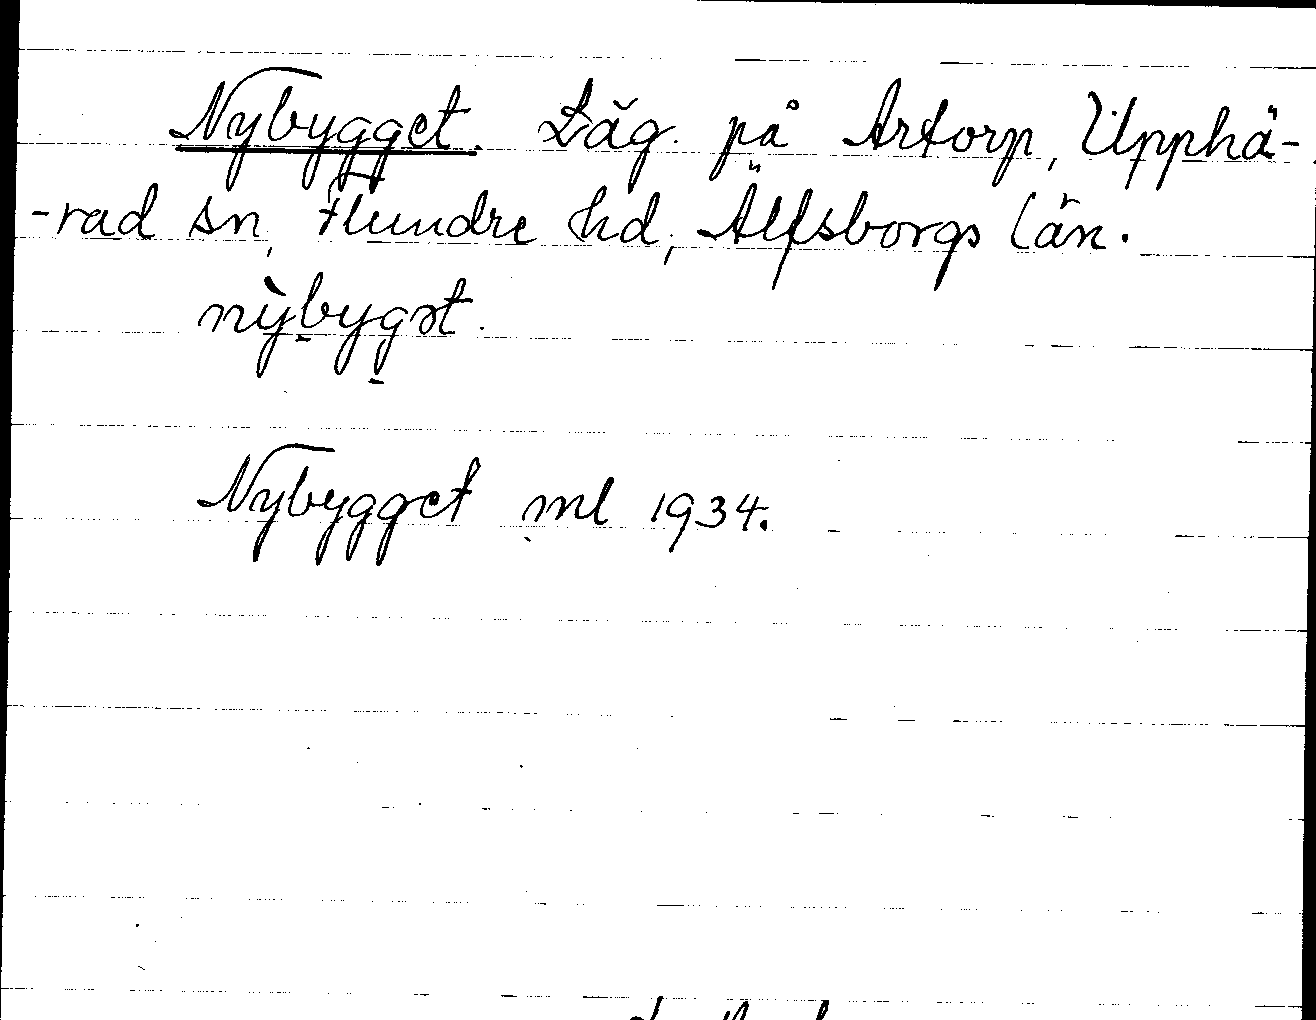 Nybygget. Läg. på Artorp, Upphä-
-rad sn, Flundre hd, Älfsborgs län.
nỳbygət.
Nybygget ml 1934.